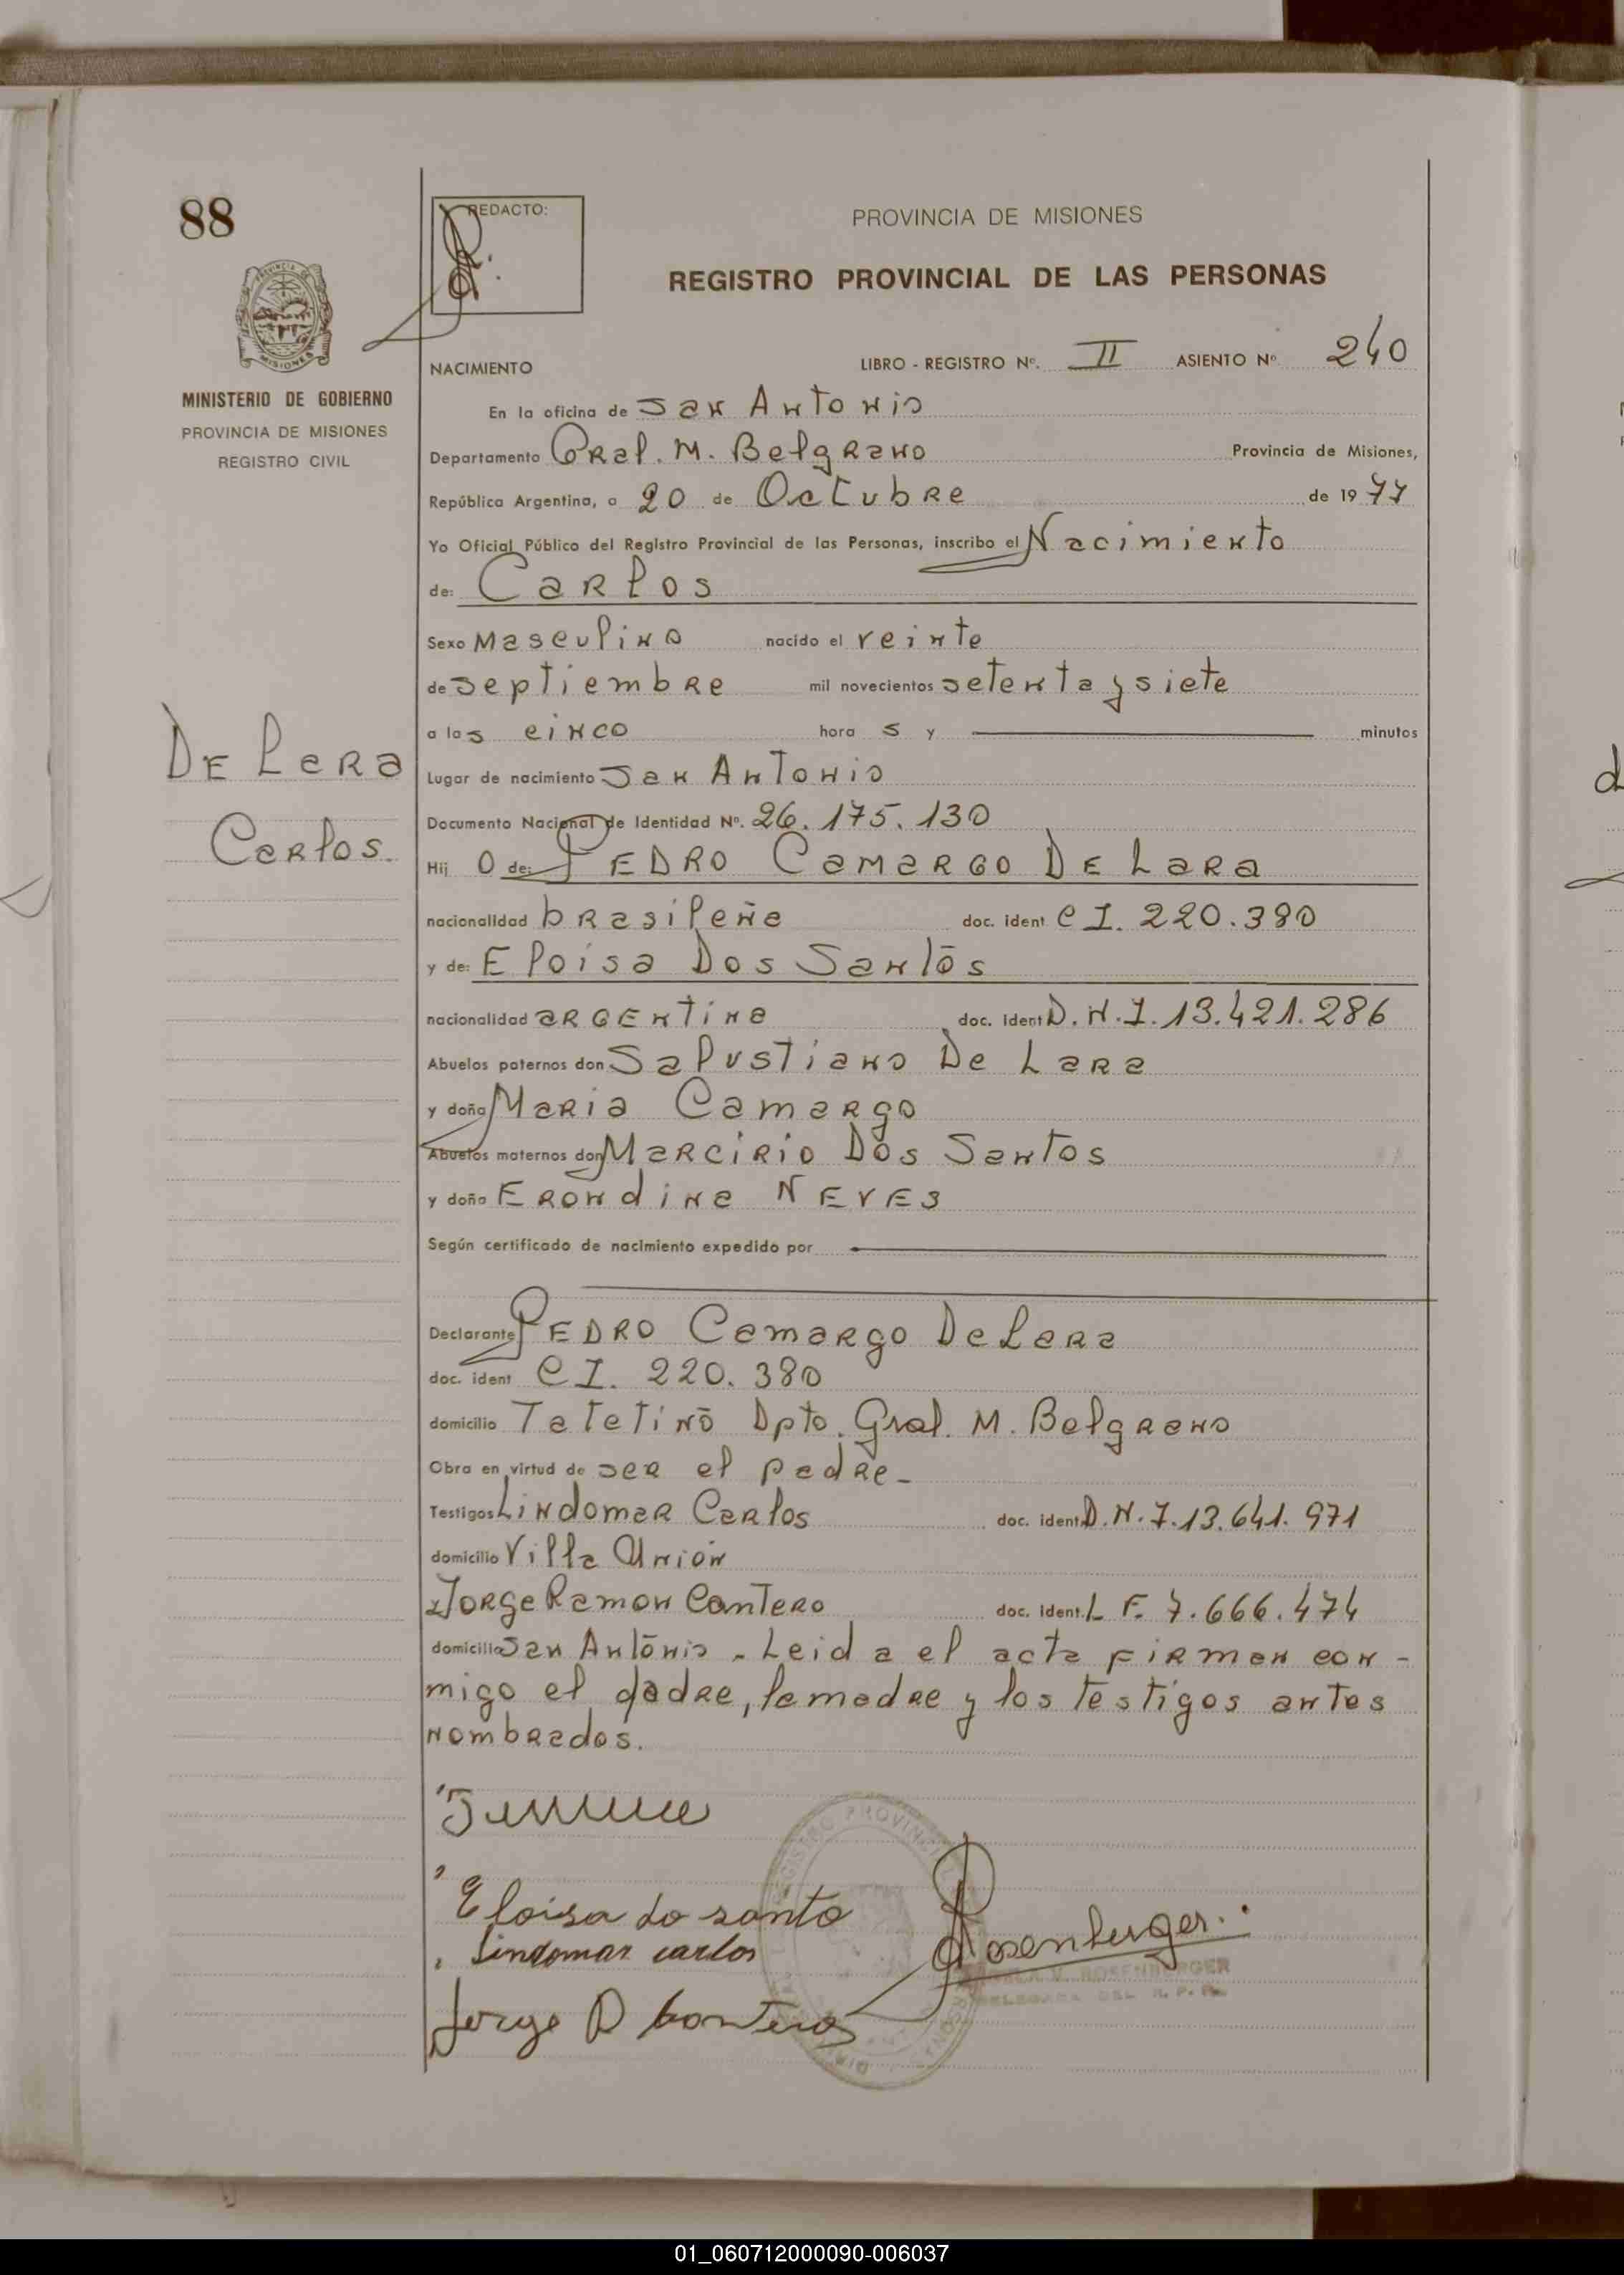 88
REDACTO:
PROVINCIA DE MISIONES
REGISTRO PROVINCIAL DE LAS PERSONAS
PROVINCIA DE
MISIONES
MINISTERIO DE GOBIERNO
PROVINCIA DE MISIONES
REGISTRO CIVIL
NACIMIENTO LIBRO - REGISTRO Nº. II ASIENTO Nº 240
En la oficina de San Antonio
Departamento Gral. M. Belgrano Provincia de Misiones,
República Argentina, a 20 de Octubre de 1977
Yo Oficial Público del Registro Provincial de las Personas, inscribo el Nacimiento
de: Carlos
Sexo Masculino nacido el veinte
de septiembre mil novecientos setenta y siete
a las cinco hora s y minutos
De Lara
Carlos.
Lugar de nacimiento San Antonio
Documento Nacional de Identidad Nº. 26.175.130
Hij O de: PEDRO Camargo De Lara
nacionalidad brasileña doc. ident C I. 220.380
y de: Eloisa Dos Santos
nacionalidad argentina doc. ident D.N.I. 13.421.286
Abuelos paternos don Salustiano De Lara
y doña Maria Camargo
Abuelos maternos don Marcirio Dos Santos
y doña Erondina NEVES
Según certificado de nacimiento expedido por
Declarante PEDRO Camargo De Lara
doc. ident C I. 220.380
domicilio Tatetino Dpto. Gral. M. Belgrano
Obra en virtud de ser el padre -
Testigos Lindomar Carlos doc. ident. D.N.I. 13.641.971
domicilio Villa Unión
y Jorge Ramon Cantero doc. ident. L E. 7.666.474
domicilio San Antonio - Leid a el acta firman con -
migo el padre, la madre y los testigos antes
nombrados.
Eloisa do santo
Lindomar carlos
Jorge R Cantero
Rosenberger
V. ROSENBERGER
DELEGADA DEL R. P. P.
REGISTRO PROVINCIAL
01_060712000090-006037